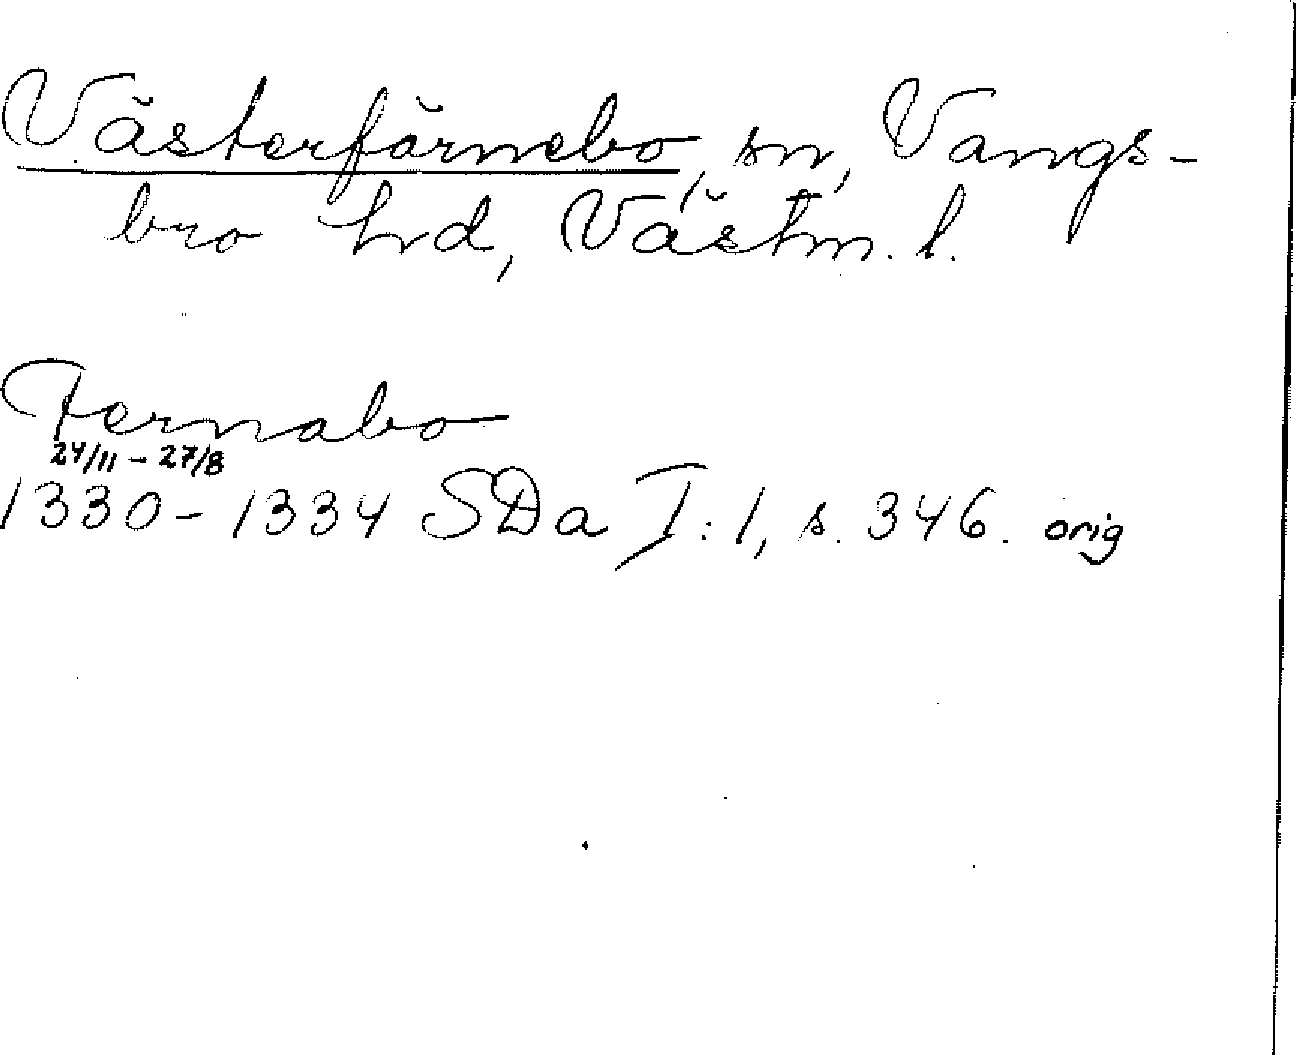 Västerfärnebo, sn, Vangs-
bro hrd, Västm. l.
Fernabo
24/11 - 27/8
1330-1334 SDa I:1, s. 346. orig